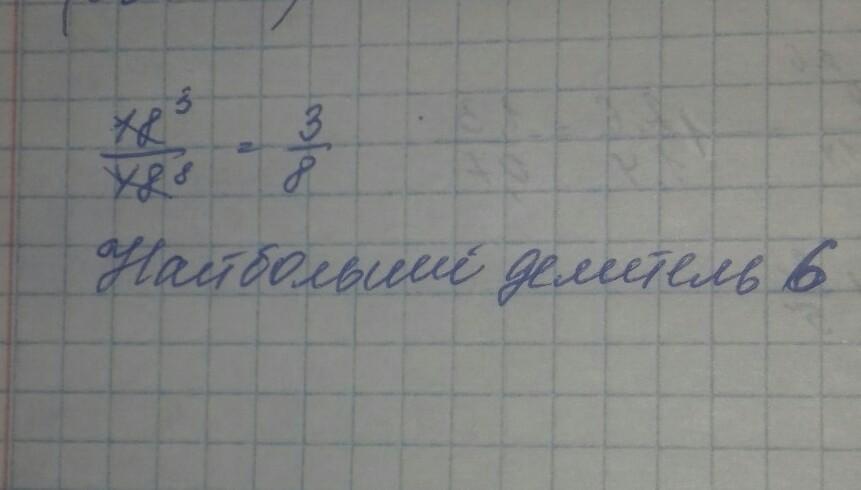 18 3
48 8 = 3
8
Наибольший делитель 6